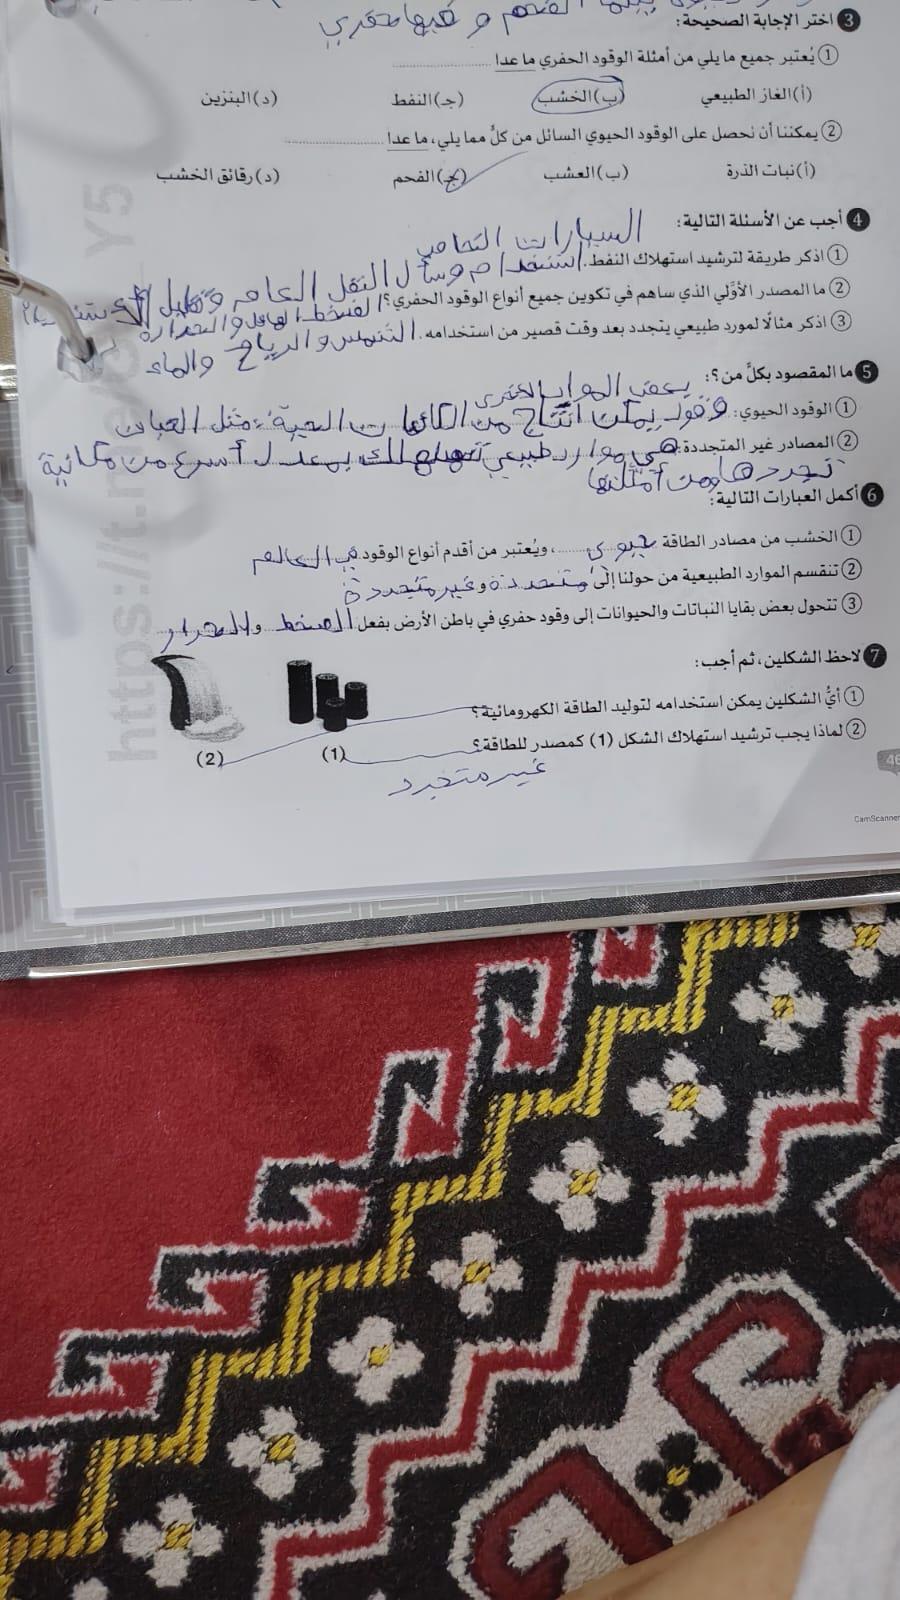 بينما الفحم و حفري
3 اختر الإجابة الصحيحة:
① يُعتبر جميع ما يلي من أمثلة الوقود الحفري ما عدا ..........
(أ) الغاز الطبيعي (ب) الخشب (جـ) النفط (د) البنزين
② يمكننا أن نحصل على الوقود الحيوي السائل من كلٍّ مما يلي، ما عدا ..........
(أ) نبات الذرة (ب) العشب (جـ) الفحم (د) رقائق الخشب
4 أجب عن الأسئلة التالية:
السيارات
① اذكر طريقة لترشيد استهلاك النفط. استخدام وسأل النقل العامه وتقليل
② ما المصدر الأوَّلي الذي ساهم في تكوين جميع أنواع الوقود الحفري؟ الضغط والحرارة
③ اذكر مثالًا لمورد طبيعي يتجدد بعد وقت قصير من استخدامه. الشمس والرياح والماء
5 ما المقصود بكلٍّ من؟: بعض المواد
① الوقود الحيوي: وقود يمكن انتاج من الكائنات الحية مثل
② المصادر غير المتجددة: هي موارد طبيعي تستهلك بمعدل أسرع من
تجددها ومن أمثلتها
6 أكمل العبارات التالية:
① الخشب من مصادر الطاقة حيوي ..........، ويُعتبر من أقدم أنواع الوقود في العالم
② تنقسم الموارد الطبيعية من حولنا إلى متجددة و غير متجددة
③ تتحول بعض بقايا النباتات والحيوانات إلى وقود حفري في باطن الأرض بفعل الضغط و الحرار
7 لاحظ الشكلين، ثم أجب:
① أيُّ الشكلين يمكن استخدامه لتوليد الطاقة الكهرومائية؟
② لماذا يجب ترشيد استهلاك الشكل (1) كمصدر للطاقة؟
(1) (2)
غير متجدد
46
CamScanner
https://t.me/
Y5